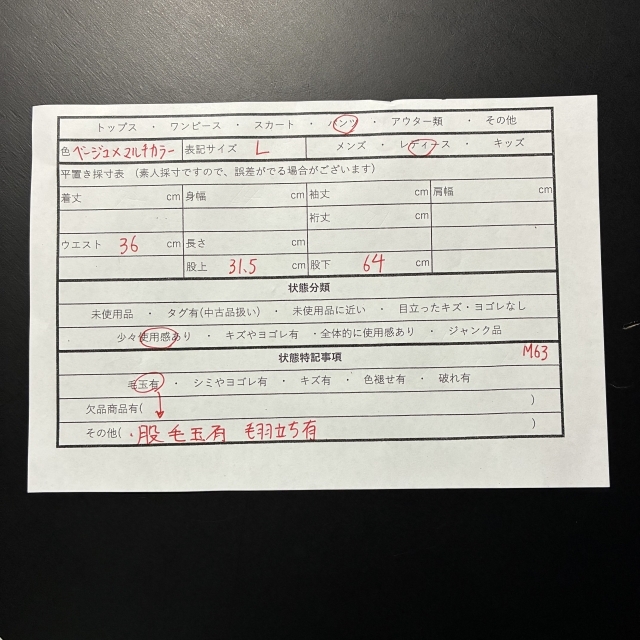 トップス ・ ワンピース ・ スカート ・ パンツ ・ アウター類 ・ その他
色 ベージュ×マルチカラー 表記サイズ L メンズ ・ レディース ・ キッズ
平置き採寸表 (素人採寸ですので、誤差がでる場合がございます)
着丈 cm 身幅 cm 袖丈 cm 肩幅 cm
裄丈 cm
ウエスト 36 cm 長さ cm
股上 31.5 cm 股下 64 cm
状態分類
未使用品 ・ タグ有(中古品扱い) ・ 未使用品に近い ・ 目立ったキズ・ヨゴレなし
少々使用感あり ・ キズやヨゴレ有 ・全体的に使用感あり ・ ジャンク品
状態特記事項 M63
毛玉有 ・ シミやヨゴレ有 ・ キズ有 ・ 色褪せ有 ・ 破れ有
欠品商品有( )
その他( ・股毛玉有 毛羽立ち有 )